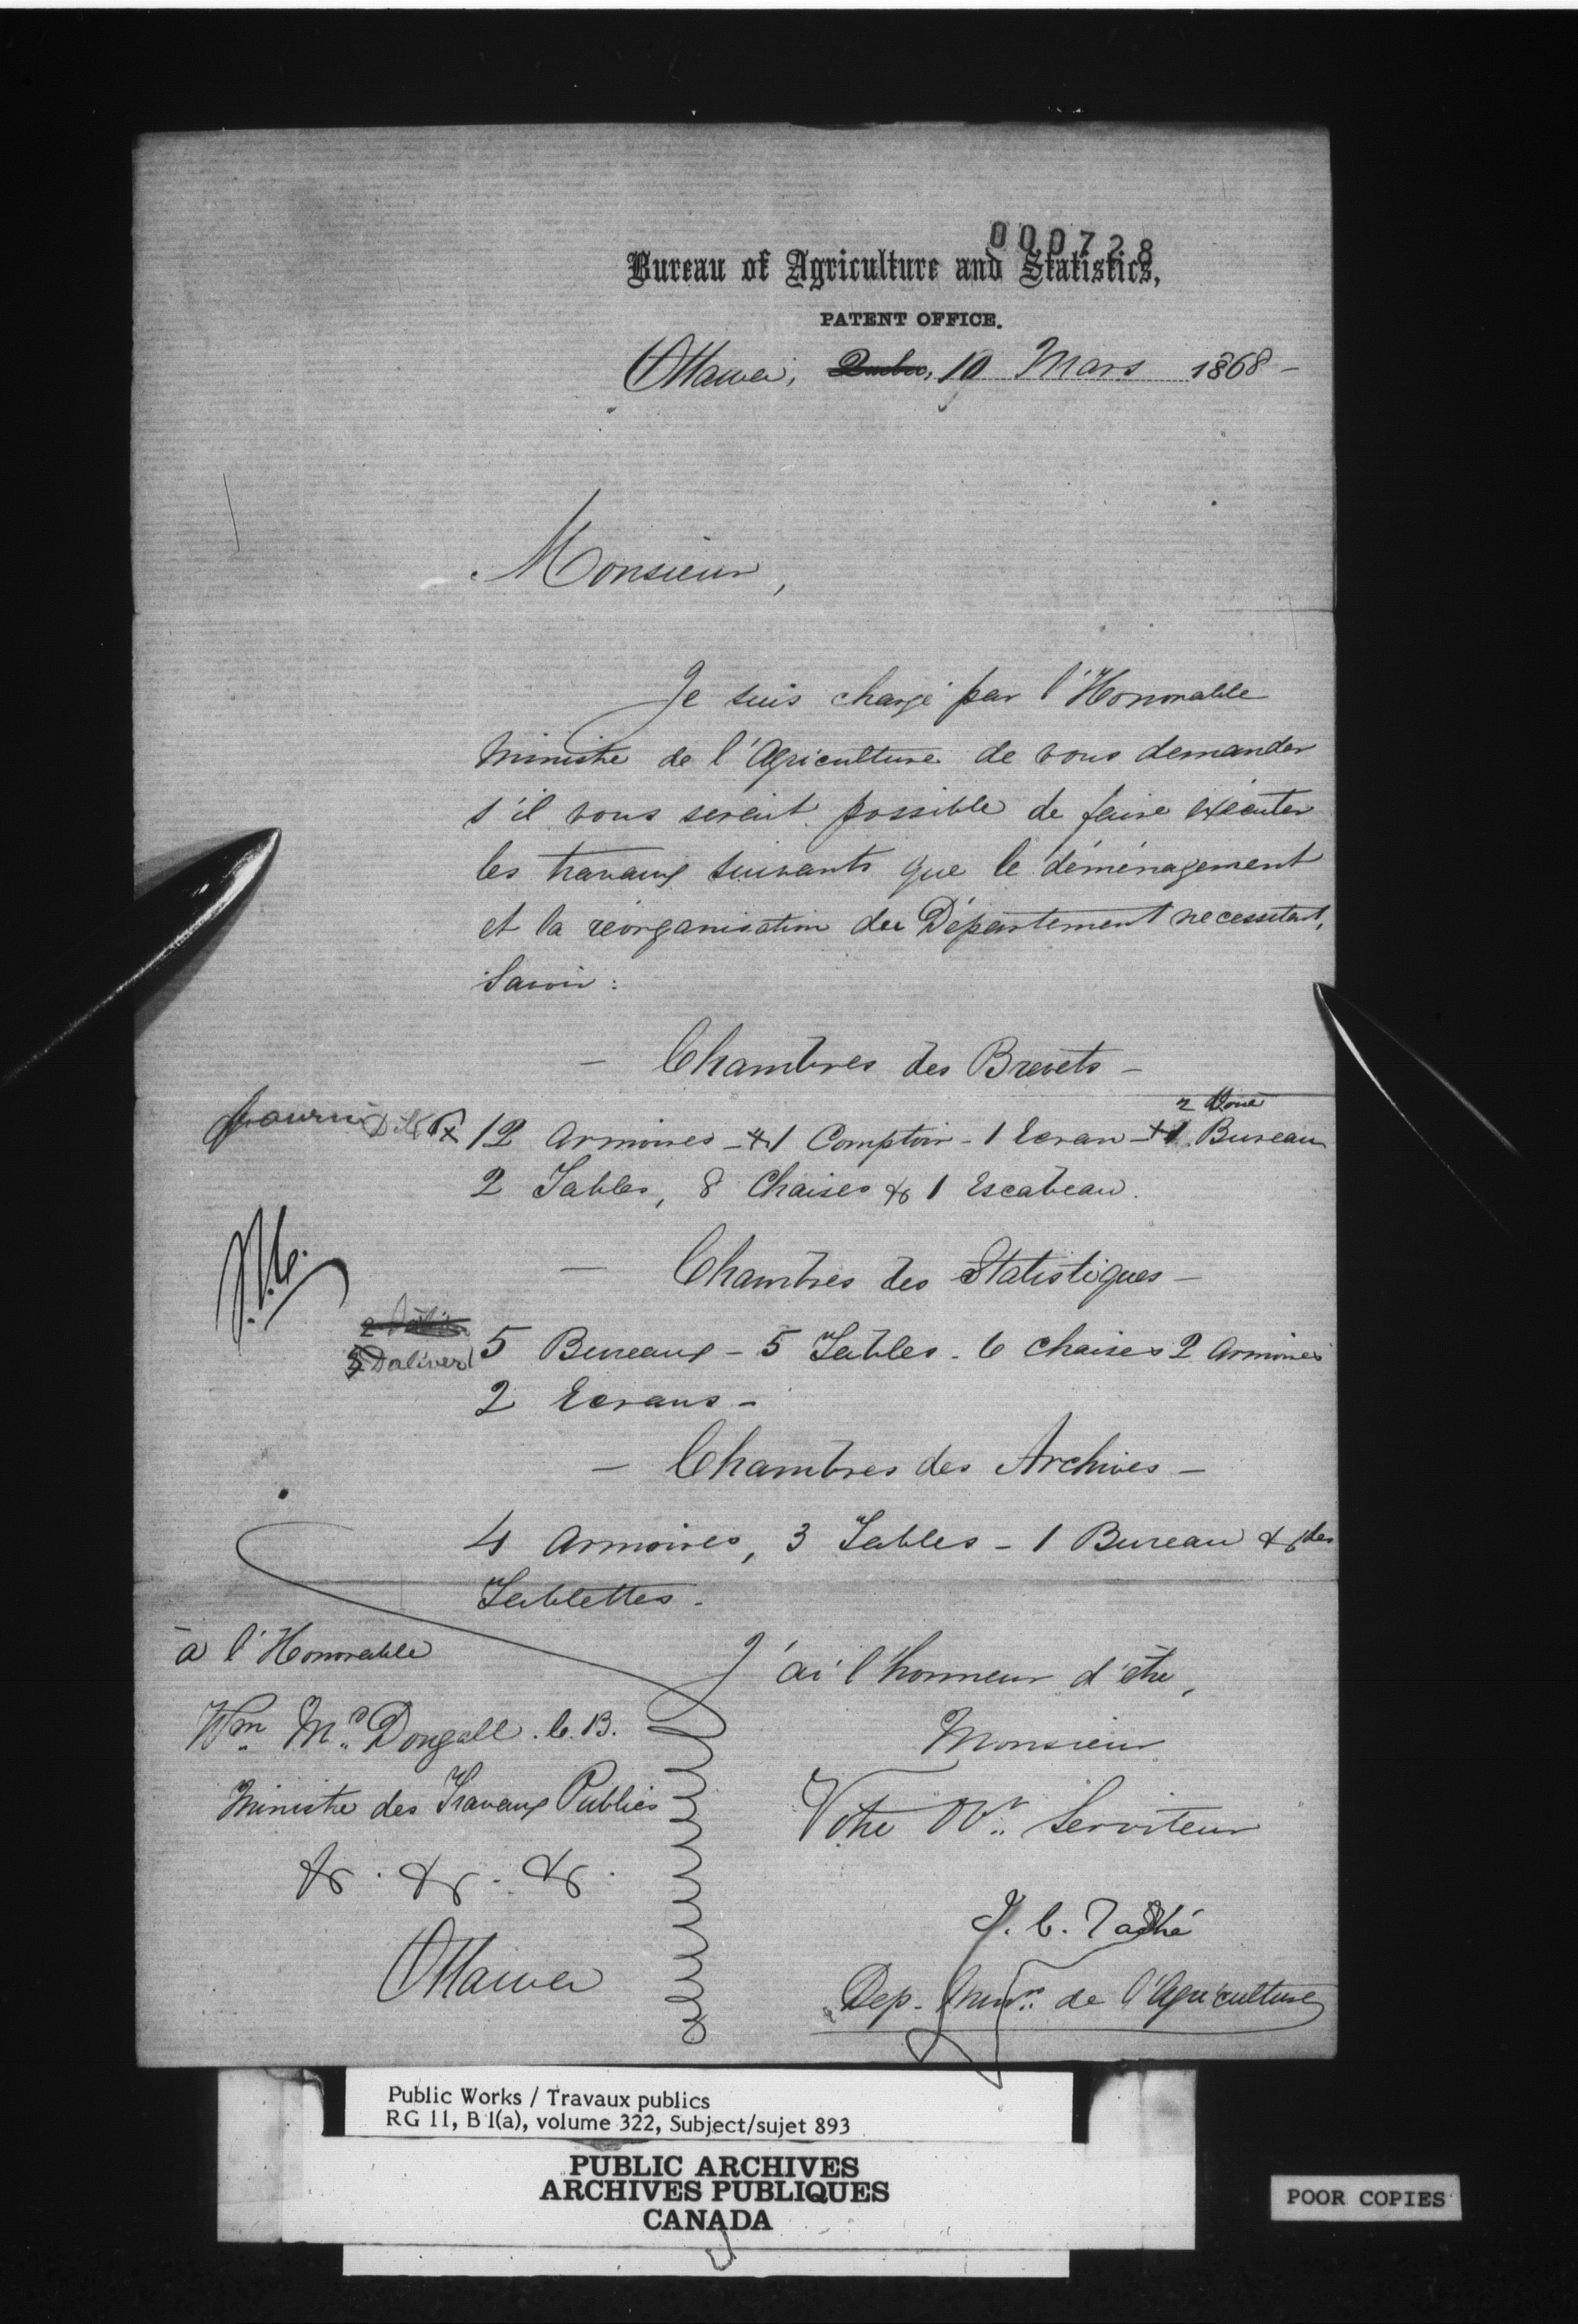 000728
Bureau of Agriculture and Statistics,
PATENT OFFICE.
Ottawa, Quebec, 10 Mars 1868 -
Monsieur,
Je suis chargé par l'Honorable
Ministre de l'Agriculture de vous demander
s'il vous serait possible de faire exécuter
les travaux suivants que le déménagement
et la réorganisation du Département necessitent,
Savoir :
- Chambres des Brevets -
2 Done
fourni 12 Armoires - 1 Comptoir - 1 Ecran - 1 Bureau
2 Tables, 8 Chaises & 1 Escabeau.
- Chambres des Statistiques -
5 Deliverd 5 Bureaux - 5 Tables - 6 chaises 2 Armoires
2 Ecrans -
- Chambres des Archives -
4 Armoires, 3 Tables - 1 Bureau & des
Tablettes.
J'ai l'honneur d'être,
Monsieur
Votre Obt. Serviteur
J. C. Taché
Dep. Minr. de l'Agriculture
à l'Honorable
Wm. Mc. Dougall. C. B.
Ministre des Travaux Publics
&c. &c. &c.
Ottawa
Public Works / Travaux publics
RG 11, B 1(a), volume 322, Subject/sujet 893
PUBLIC ARCHIVES
ARCHIVES PUBLIQUES
CANADA
POOR COPIES